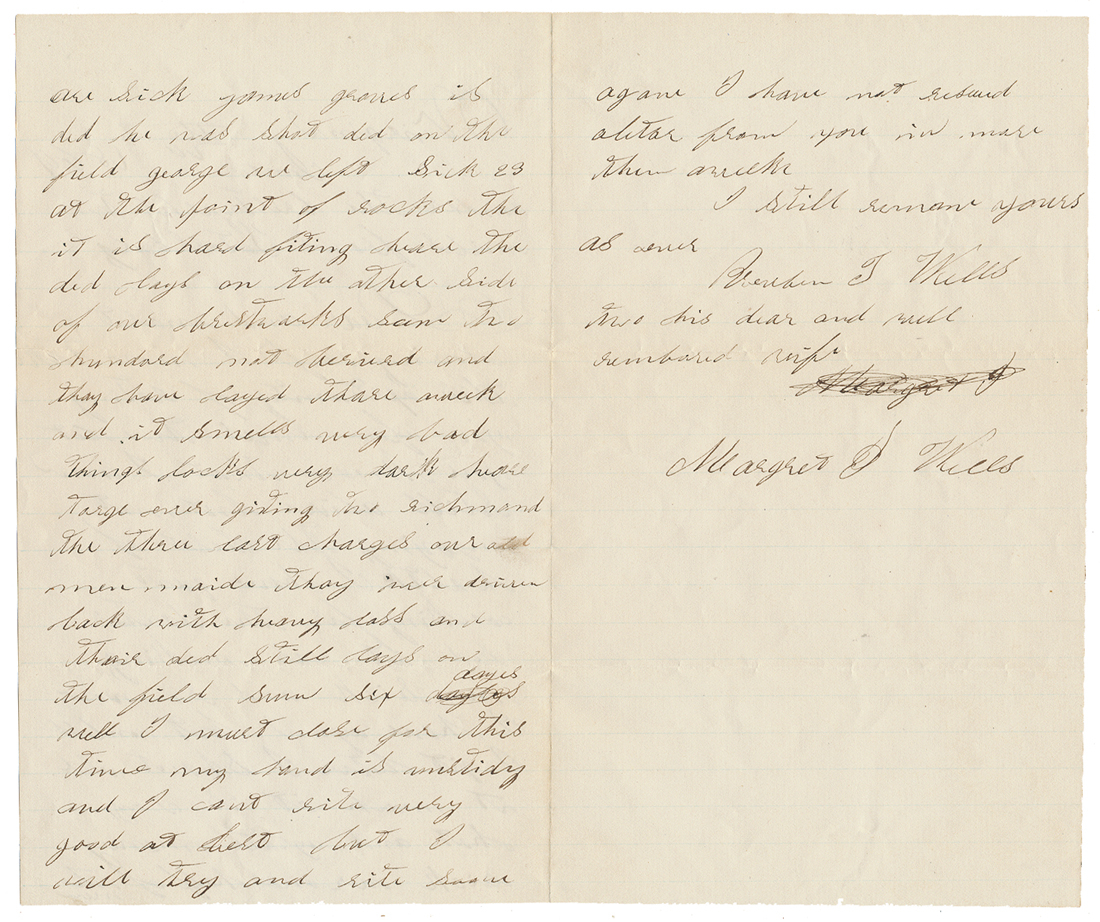 are sick james graves is
ded he was shot ded on the
field george w left sick 23
at the point of rocks the
it is hard fiting heare the
ded lays on the other side
of our brestwarks sum two
hundord not beriend and
thay have layed thare aweek
and it smells very bad
things locks very dark heare
targe over giting two richmond
the three last charges our
men maide thay wer driven
back with heavy loss and
thair ded still lays on
the field sum six dayes
well I must close for this
time my hand is unstidy
and I cant rite very
good at best but I
will try and rite soone
agane I have not reseued
aletar from you in more
then aweeke
I still remane yours
as ever
Reeuben T Wells
two his dear and well
rembared wife
Margret J
Margret J Wells